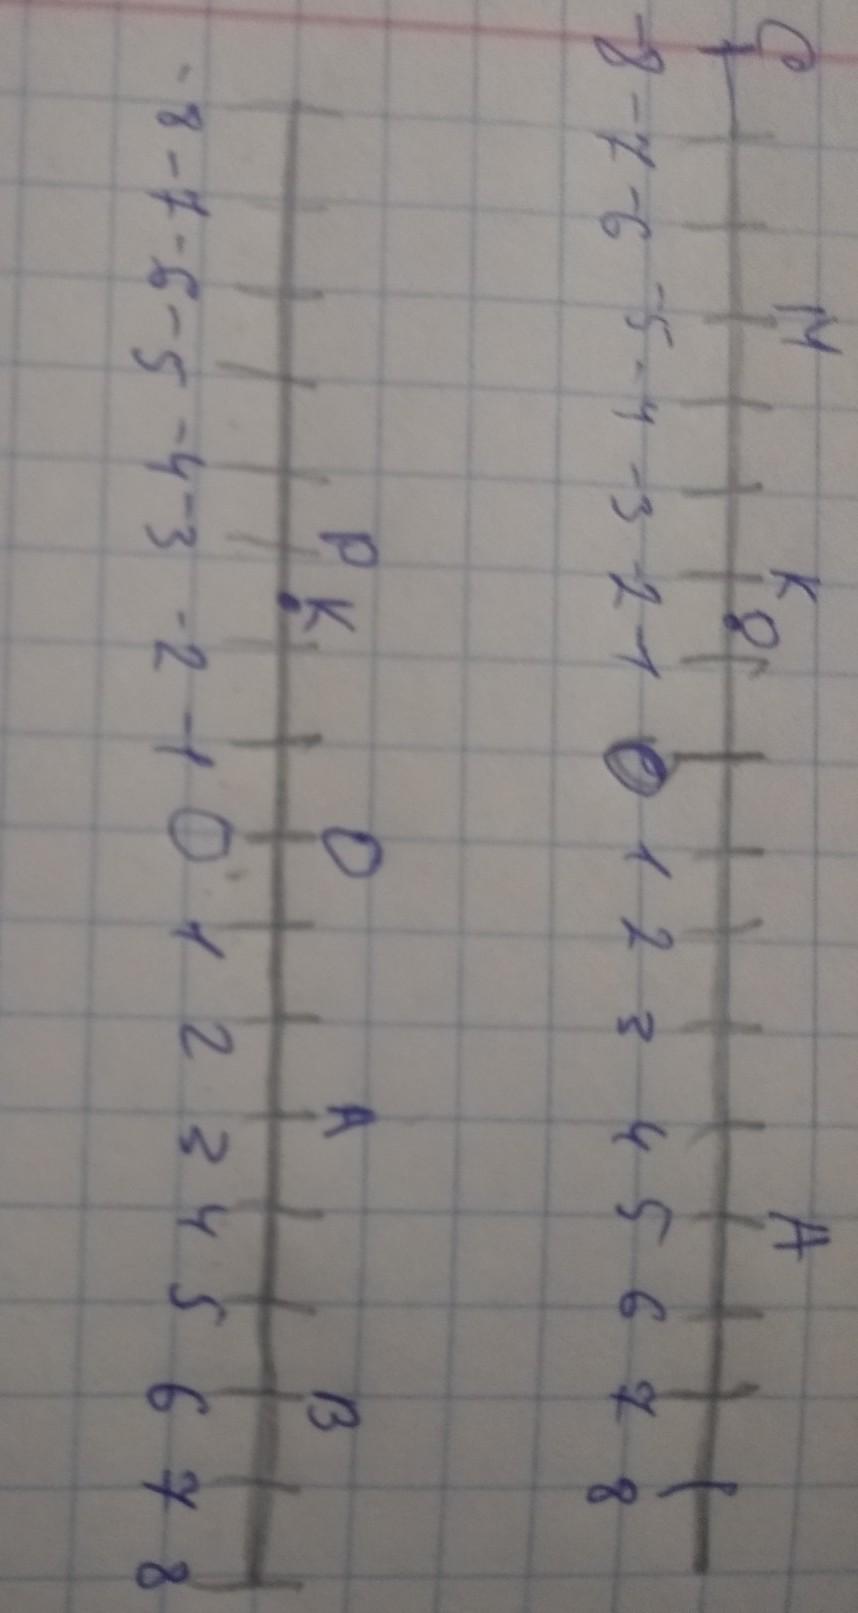 C M K O A
-8 -7 -6 -5 -4 -3 -2 -1 0 1 2 3 4 5 6 7 8
P K O A B
-8 -7 -6 -5 -4 -3 -2 -1 0 1 2 3 4 5 6 7 8